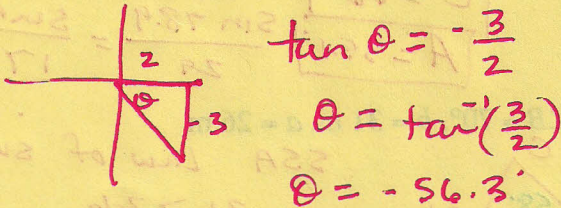 2
θ
-3
tan θ = -3/2
θ = tan⁻¹(3/2)
θ = -56.3°